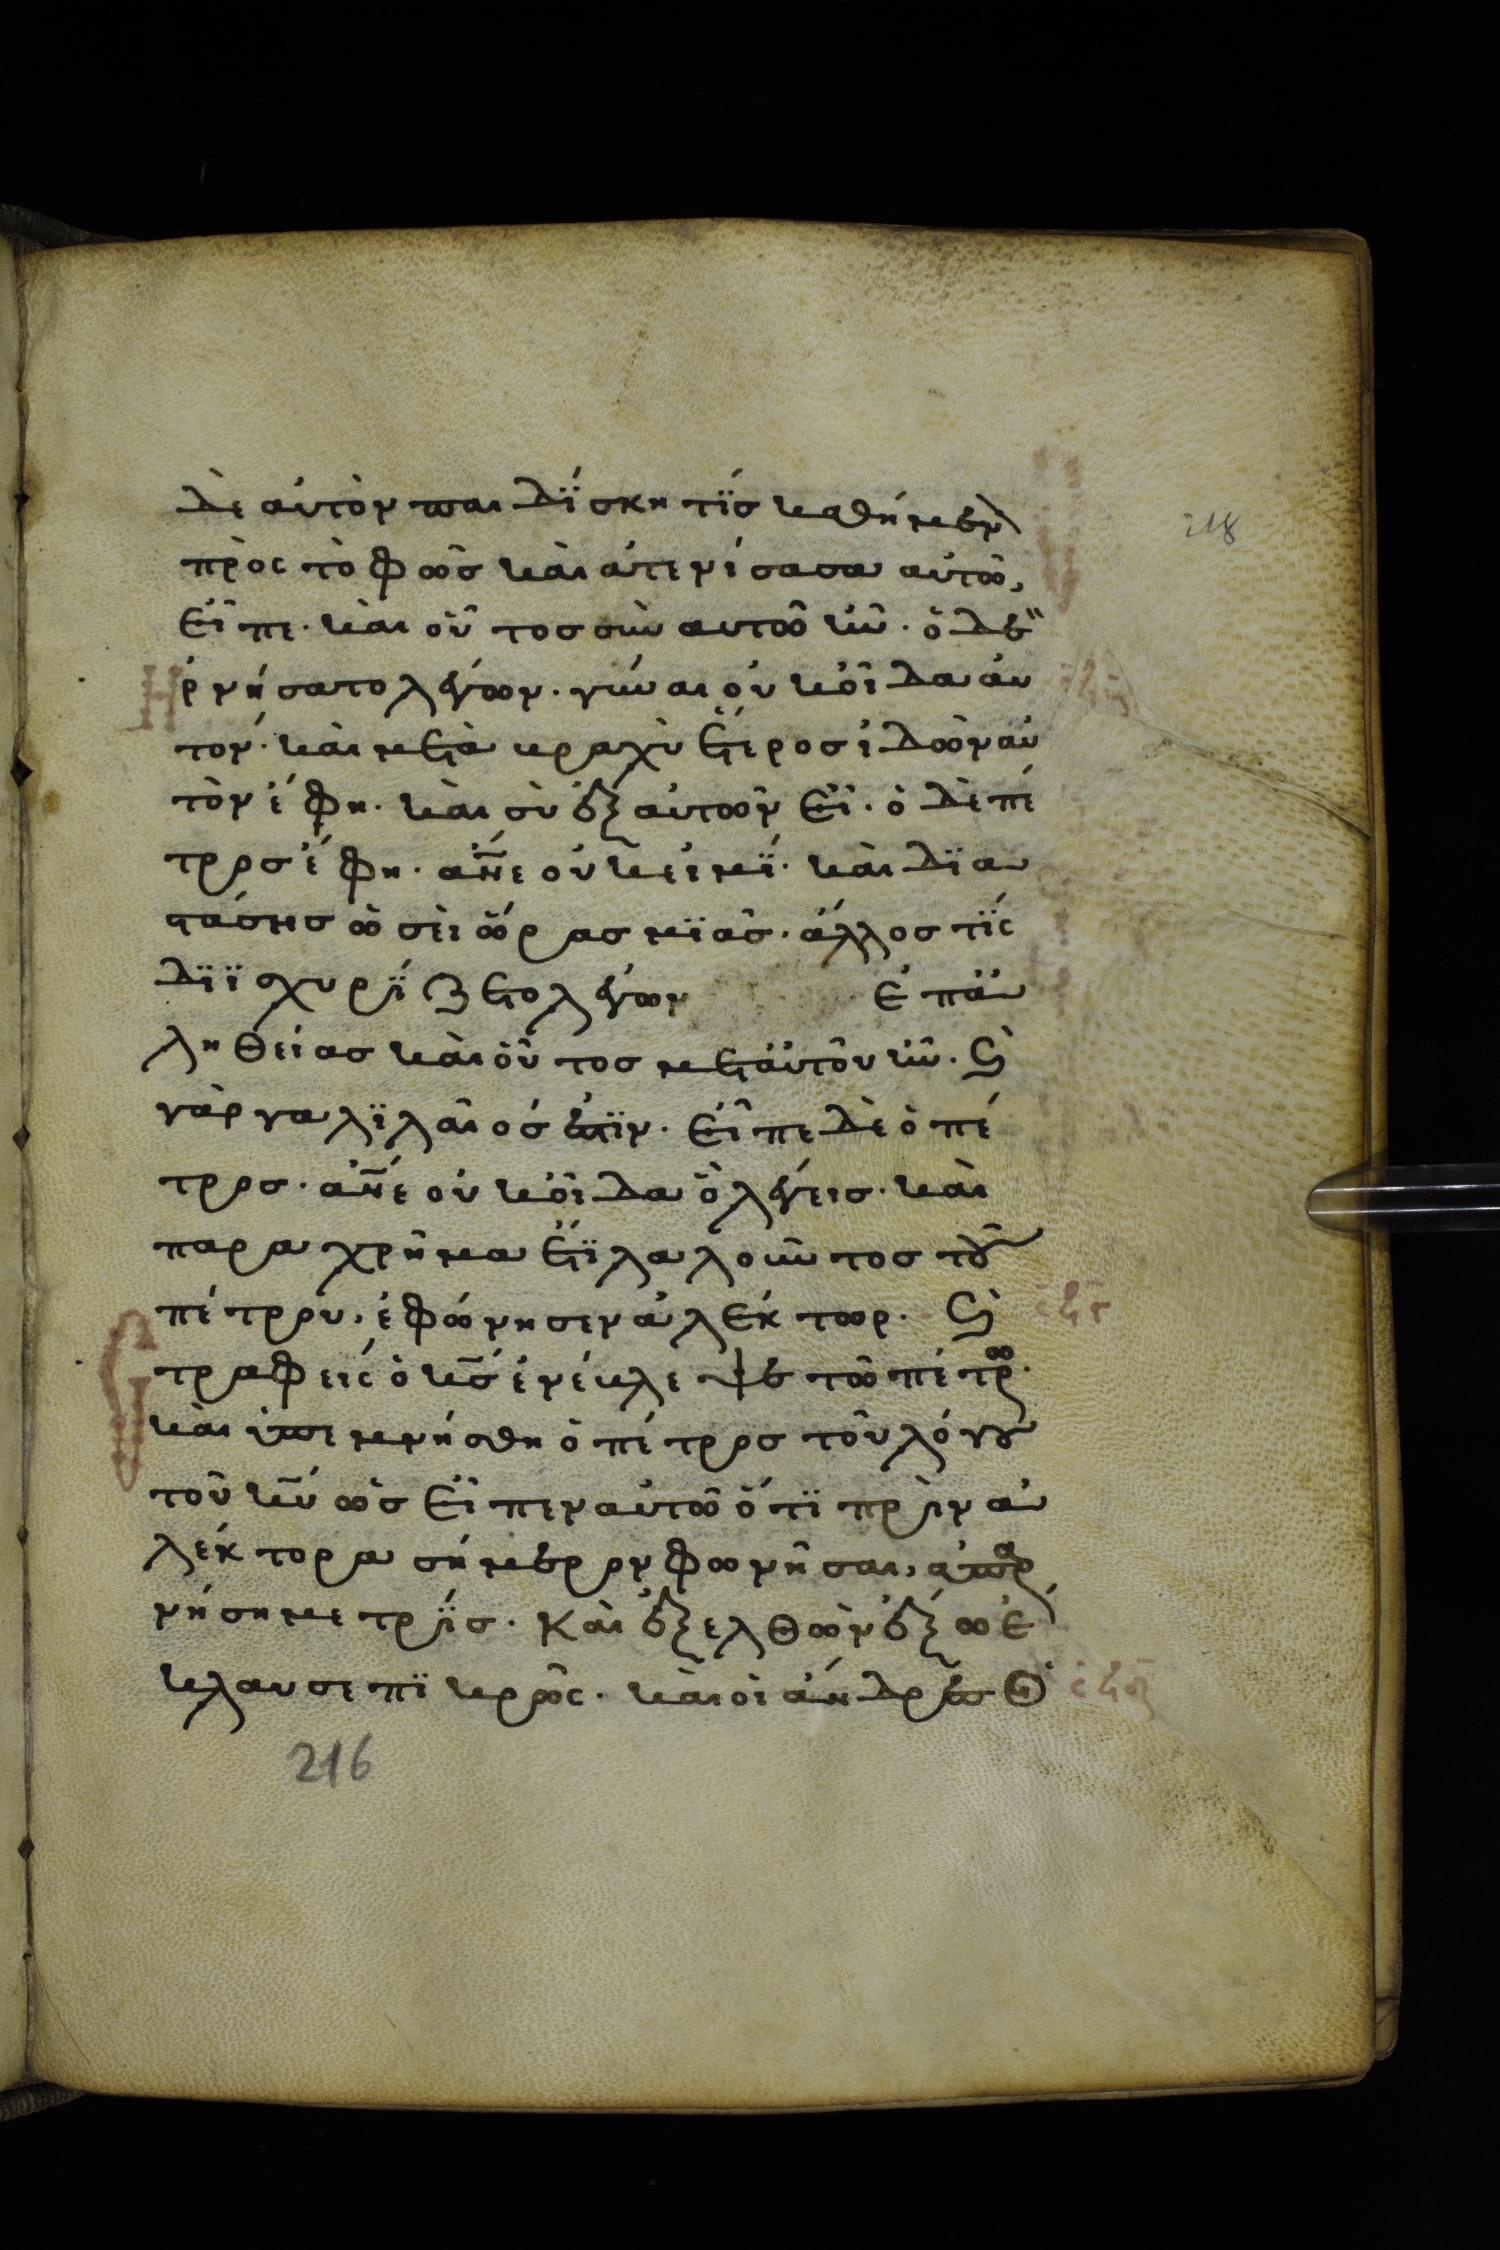 218
δὲ αὐτὸν παιδΐσκη τΐσ καθήμεν
πρὸς τὸ φῶσ καὶ ἀτενίσασα αὐτῶ,
εἶπε· καὶ οὗτοσ σὺν αυτῶ ἦν· ὁ δὲ
Ηρνήσατο λέγων· γύναι οὐκ οἶδα αὐ
τον· καὶ μετὰ βραχὺ ἕτεροσ ἰδὼν αὐ
τὸν ἔφη· καὶ σὺ ἐξ αὐτῶν εἶ· ὁ δὲ πέ
τροσ ἔφη· ἄνε οὐκ εἰμΐ· καὶ δϊα
στάσησ ὡσεὶ ὥρασ μϊᾶσ· ἄλλοσ τΐς
δϊϊσχυρΐζετο λέγων ἐπ ἀ
ληθείασ καὶ οὗτοσ μετ αὐτοῦ ἦν· καὶ
γὰρ γαλϊλαῖοσ ἐστϊν· εἶπε δὲ ὁ πέ
τροσ· ἄνε οὐκ οἶδα ὃ λέγεισ· καὶ
παραχρῆμα ἔτϊ λαλοῦντοσ τοῦ
πέτρου, ἐφώνησεν ἀλέκτωρ· καὶ
ϛτραφεὶς ὁ κς ἐνέβλεψε τῶ πέτρω·
καὶ ὑπεμνήσθη ὁ πέτροσ τοῦ λόγου
τοῦ κυ ὡσ εἶπεν αὐτῶ ὅτϊ πρὶν ἀ
λέκτορα σήμερον φωνῆσαι, ἀπαρ
νήση με τρΐσ· Καὶ ἐξελθὼν ἔξω ἔ
κλαυσε πϊκρῶς· καὶ οἱ ἄνδρεσ οἱ
216